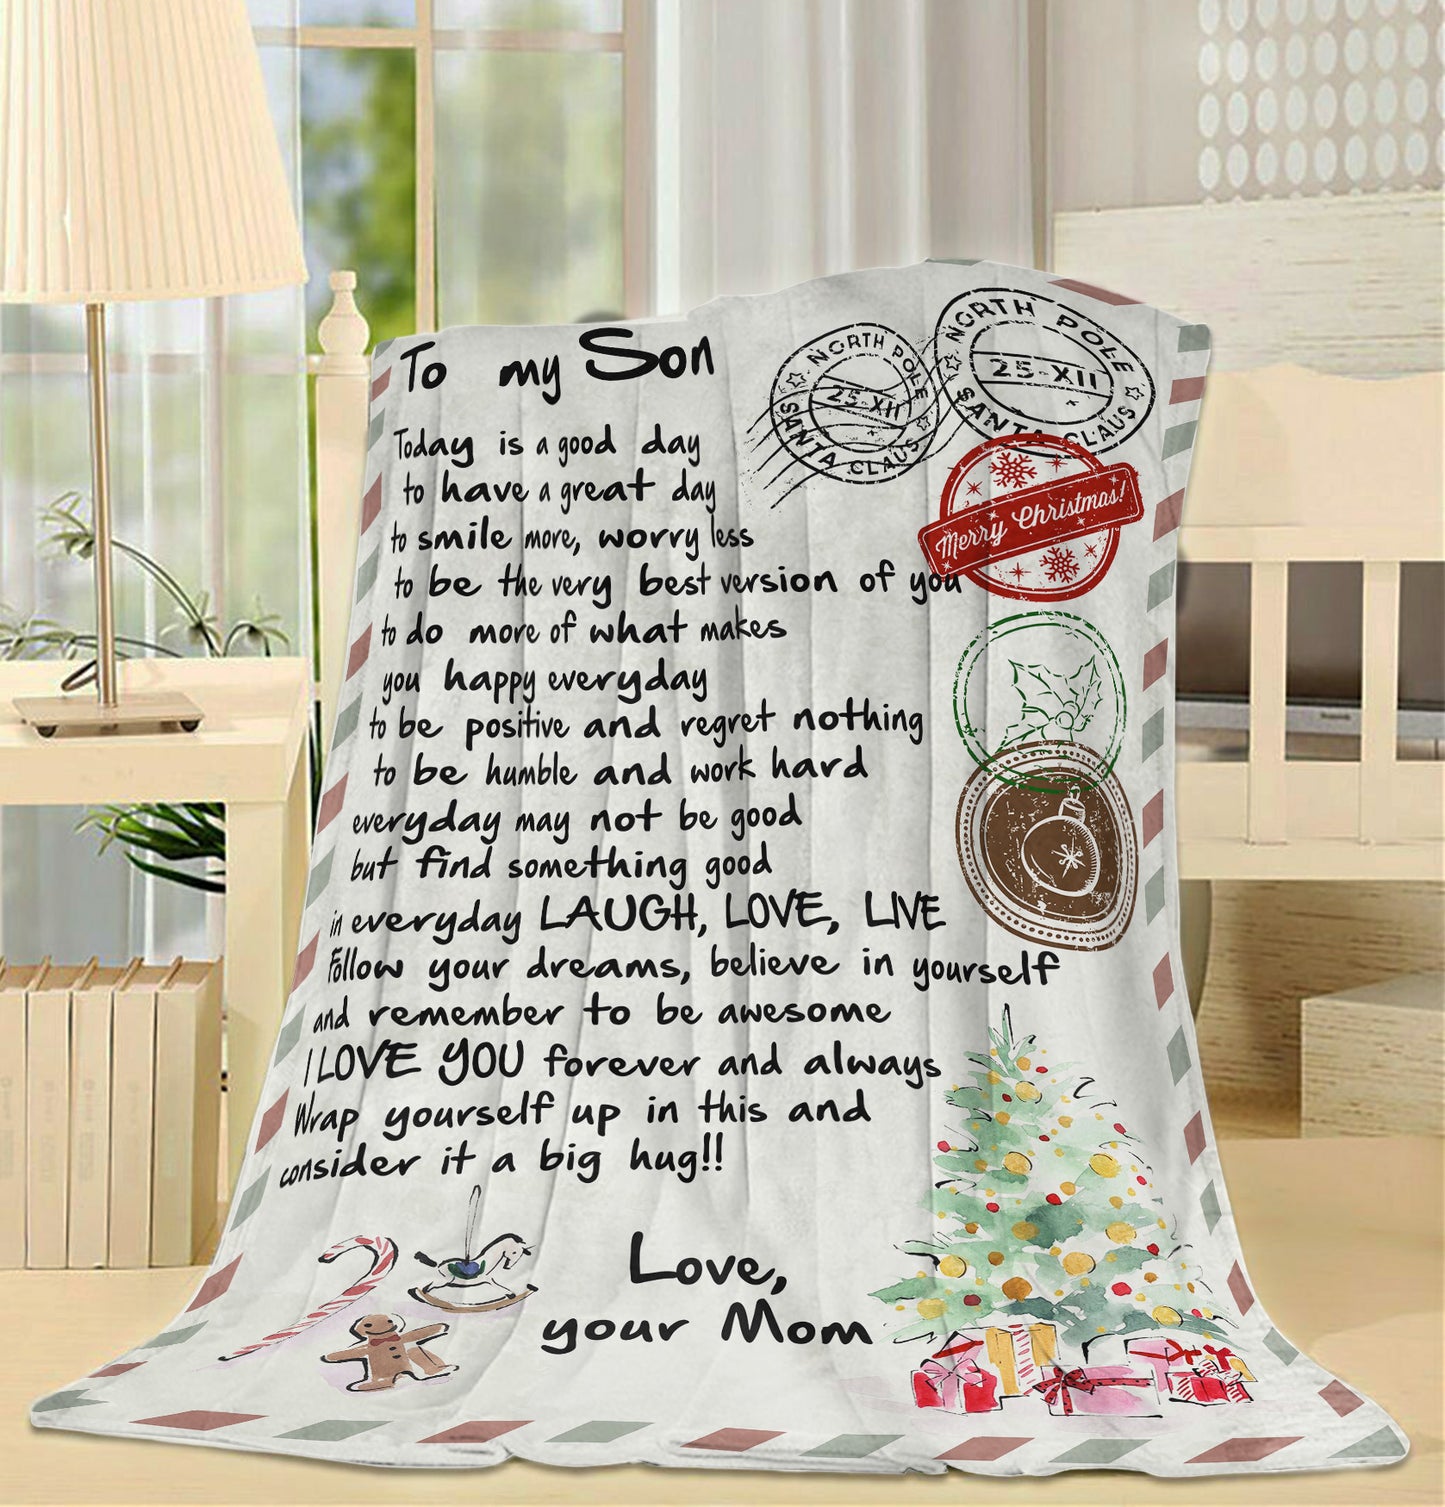 To my Son
Today is a good day
to have a great day
to smile more, worry less
to be the very best version of you
to do more of what makes
you happy everyday
to be positive and regret nothing
to be humble and work hard
everyday may not be good
but find something good
in everyday LAUGH, LOVE, LIVE
Follow your dreams, believe in yourself
and remember to be awesome
I LOVE YOU forever and always
Wrap yourself up in this and
consider it a big hug!!
Love,
your Mom
NORTH POLE
25-XII
SANTA CLAUS
NORTH POLE
25-XII
SANTA CLAUS
Merry Christmas!